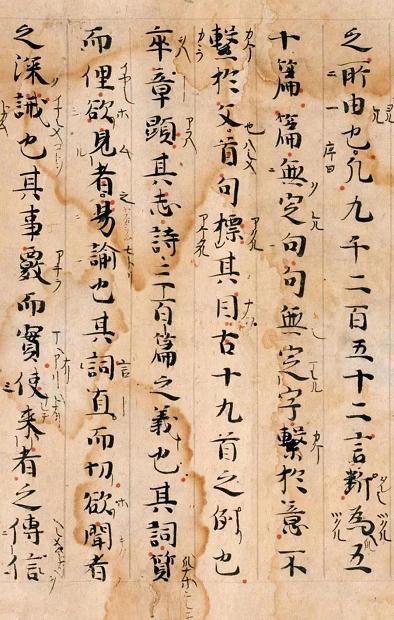 之所由也凡九千二百五十二言断為五
十篇篇無定句句無定字繫於意不
繫於文首句標其目古十九首之例也
卒章顯其志詩三百篇之義也其詞質
而俚欲見者易論也其詞直而切欲聞者
之深誡也其事覈而實使来者之傳信